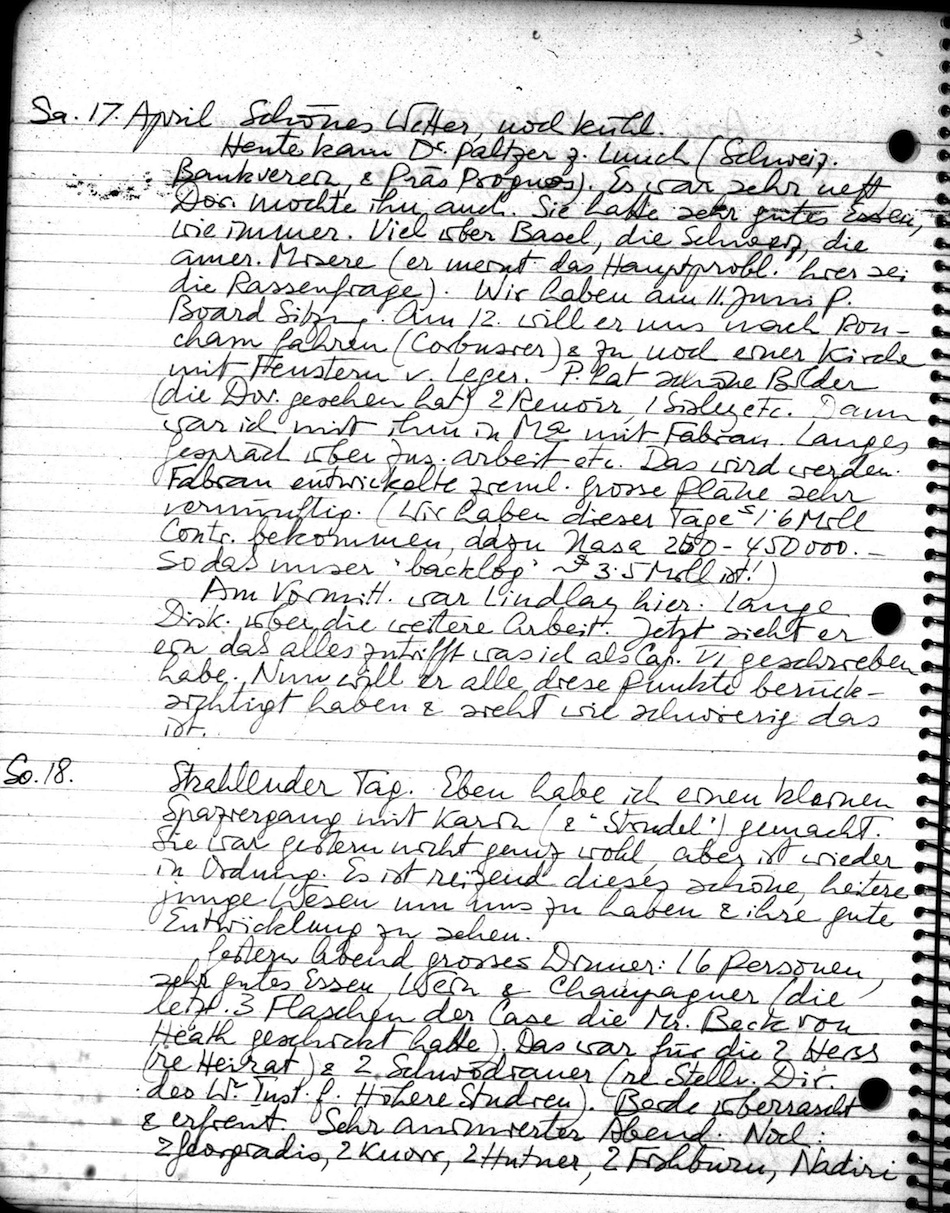 Sa. 17. April Schönes Wetter, noch kühl.
Heute kam Dr. Paltzer z. Lunch (Schweiz.
Bankverein & Präs Prognos). Es war sehr nett
Dor. mochte ihn auch. Sie hatte sehr gutes Essen,
wie immer. Viel über Basel, die Schweiz, die
amer. Misere (er meint das Hauptprobl. hier sei
die Rassenfrage). Wir haben am 11. Juni P.
Board Sitzg. Am 12. will er uns nach Ron-
champ fahren (Corbusier) & zu noch einer Kirche
mit Fenstern v. Leger. P. hat schöne Bilder
(die Dor. gesehen hat) 2 Renoir, 1 Sisley etc. Dann
war ich mit ihm in Ma mit Fabian. Langes
Gespräch über Zus. arbeit etc. Das wird werden.
Fabian entwickelte zieml. grosse Pläne sehr
vernünftig. (Wir haben dieser Tage $ 1.6 Mill
Contr. bekommen, dazu Nasa 250 - 450 000.-
sodass unser "backlog" ~ $ 3.5 Mill ist!)
Am Vormitt. war Lindlay hier. Lange
Disk. über die weitere Arbeit. Jetzt sieht er
ein das alles zutrifft was ich als Cap. VI geschrieben
habe. Nun will er alle diese Punkte berück-
sichtigt haben & sieht wie schwierig das
ist.
So. 18. Strahlender Tag. Eben habe ich einen kleinen
Spaziergang mit Karin (& "Strudel") gemacht.
Sie war gestern nicht ganz wohl, aber ist wieder
in Ordnung. Es ist reizend dieses schöne, heitere
junge Wesen um uns zu haben & ihre gute
Entwicklung zu sehen.
Gestern Abend grosses Dinner: 16 Personen,
sehr gutes Essen, Wein & Champagner (die
letzt. 3 Flaschen der Case die Mr. Beck von
Heath geschickt hatte). Das war für die 2 Herss
(re Heirat) & 2 Schwödiauer (re Stellv. Dir.
des Wr. Inst. f. Höhere Studien). Beide überrascht
& erfreut. Sehr animierter Abend. Noch:
2 Georgiadis, 2 Knorr, 2 Hutner, 2 Fishburn, Nadiri